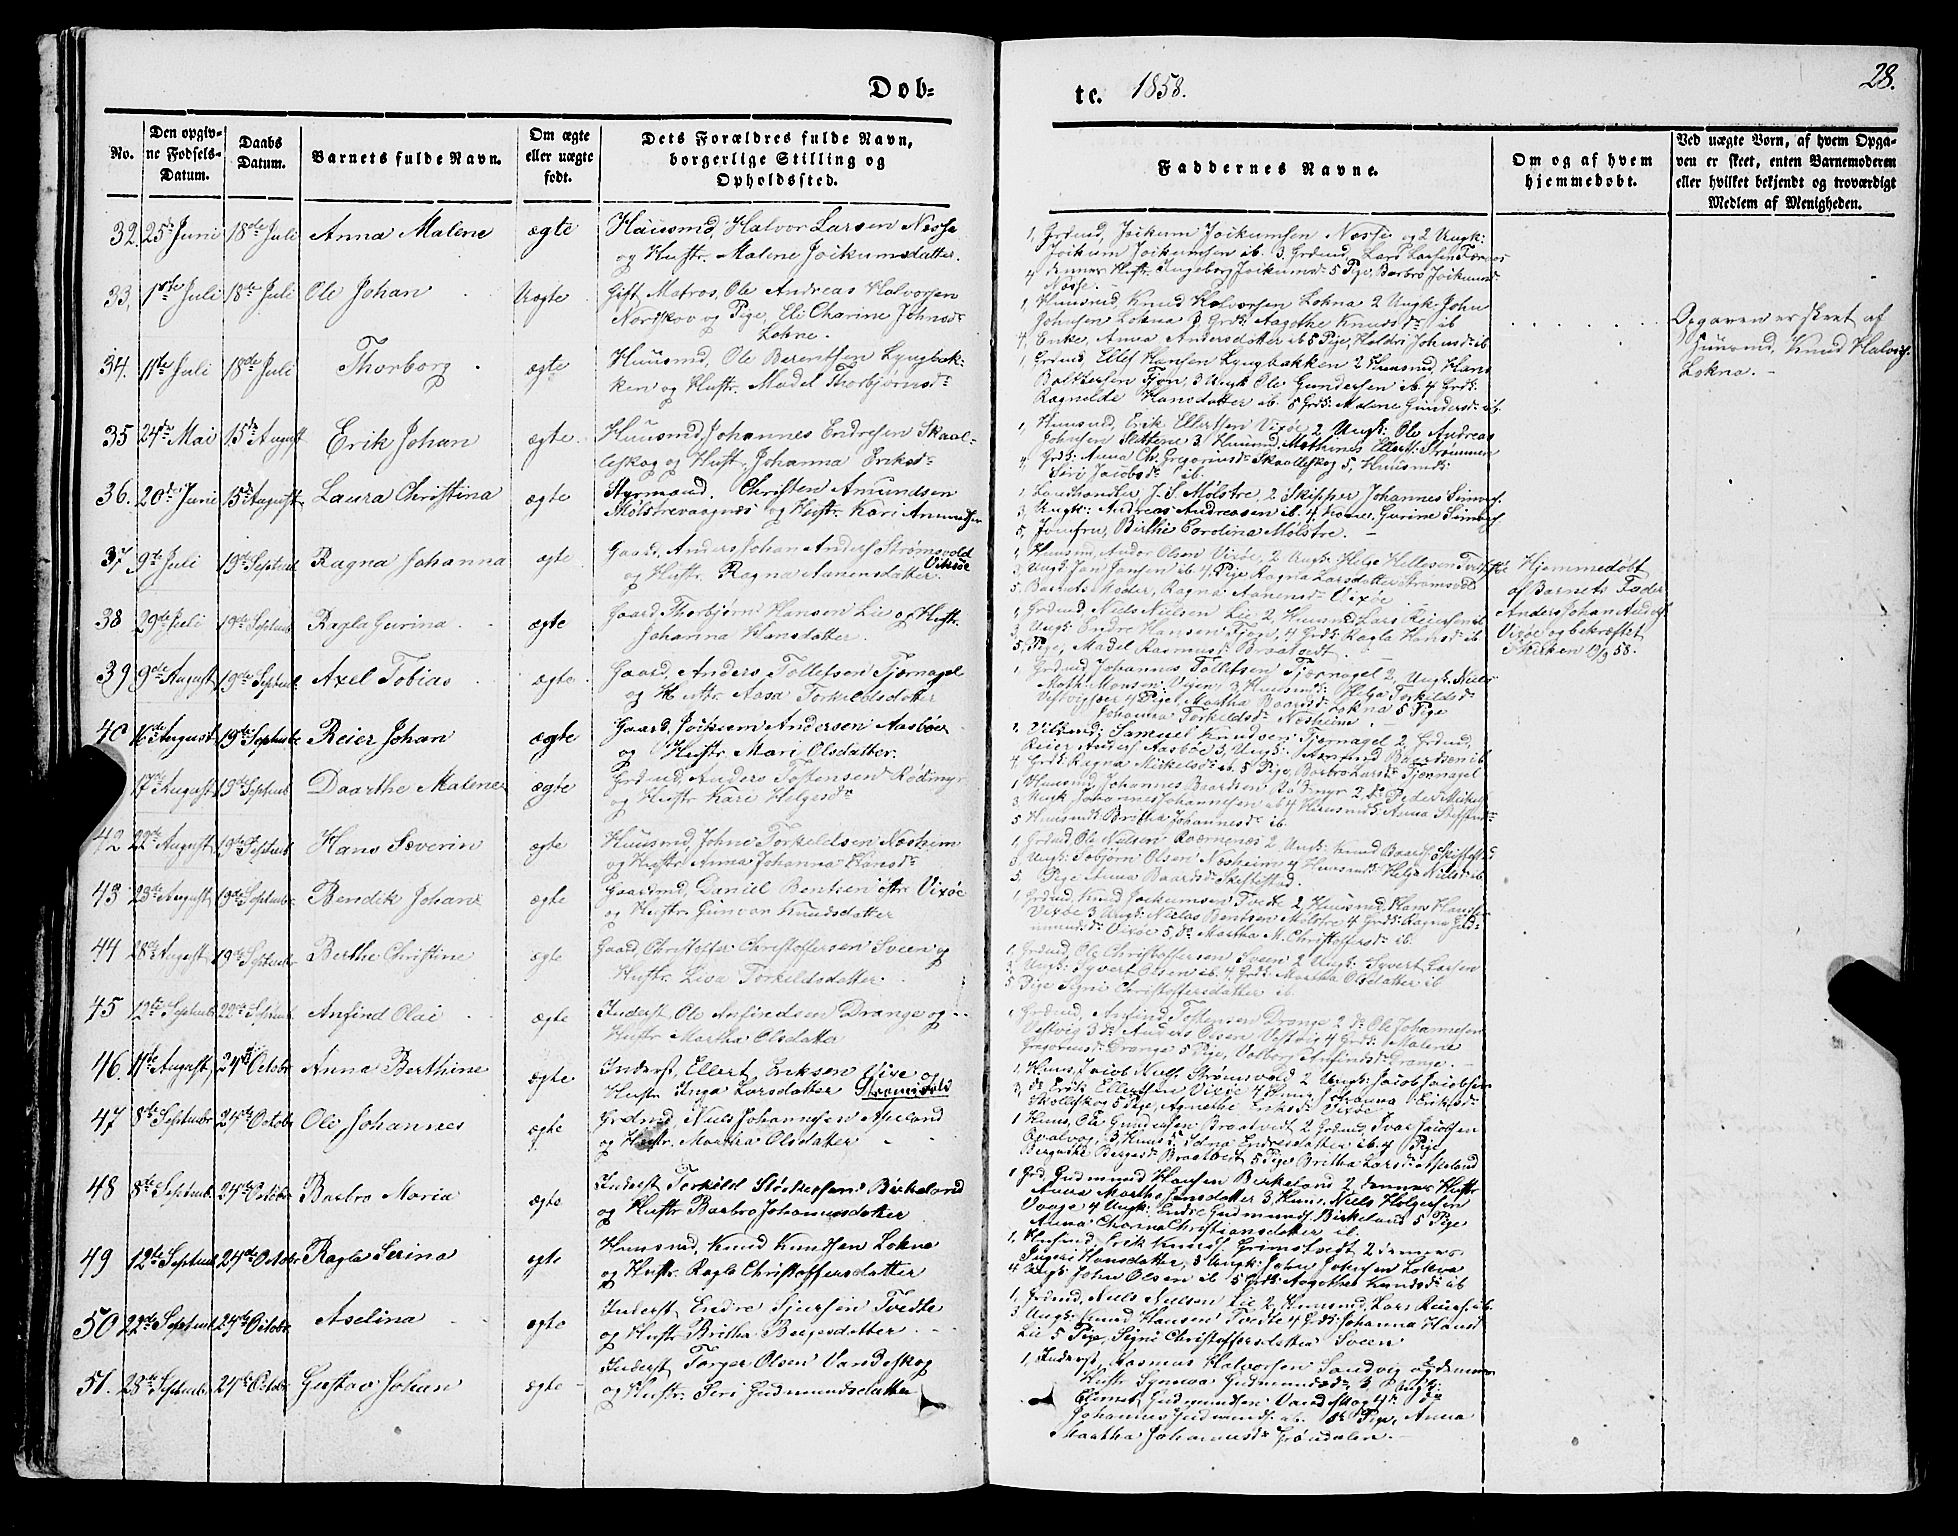 Dob-
te. 1858.
28.
No.
Den opgiv-
ne Fødsels-
Datum.
Daabs
Datum.
Barnets fulde Navn.
Om ægte
eller uægte
født.
Dets Forældres fulde Navn,
borgerlige Stilling og
Opholdssted.
Faddernes Navne.
Om og af hvem
hjemmedøbt.
Ved uægte Børn, af hvem Opga-
ven er skeet, enten Barnemoderen
eller hvilket bekjendt og troværdigt
Medlem af Menigheden.
32. 25de Juni 18de Juli Anna Malene ægte Huusmd, Halvor Larsen Nesse
og Hustr. Malene Joikumsdatter.
1, Grdmd, Joikum Joikumsen Nesse og 2 Ungk:
Joikum Joikumsen ib. 3. Grdmd, Lars Larsen
4 dennes Hustr. Ingeborg Joikumsd. 5 Pige, Barbro Joikumsd
Nesse.
33, 1ste Juli 18de Juli Ole Johan Uægte Gift Matros, Ole Andreas Halvorsen
Nordskov og Pige, Eli Charine Johnsd.
Lokne.
1, Huusmd, Knud Halvorsen Lokna 2 Ungk. John
Johnsen Lokna 3 Grdk: Aagothe Knudsd. ib
4, Enke, Anna Andersdatter ib 5 Pige, Johnsd. ib
Opgaven er skeet af
Huusmd, Knud Halvors.
Lokna.
34. 11te Juli 18de Juli Thorborg ægte Huusmd, Ole Berentsen Lyngbak-
ken og Hustr. Madel Thorbjørnsd.
1, Grdmd Ellef Hansen Lyngbakken 2 Huusmd, Hans
Baltsersen Fjon, 3 Ungk Ole Gundersen ib. 4 Grdk:
Ragnelde Hansdatter ib. 5 Grdk: Malene Gundersd. ib.
35 24de Mai 15de August Erik Johan ægte Huusmd, Johannes Endresen Skaal-
leskog og Hustr. Johanna Eriksd.
1, Huusmd, Erik Ellertsen Vixøe 2, Ungk: Ole Andreas
Johnsen 3, Huusmd, Mathines Ellert: Strømmen
4, Grdk: Anna Ch. Gregoriusd. Skaalleskog 5, Huusmdk:
Siri Jacobsd. ib.
36. 20de Juni 15de August Laura Christina ægte Styrmand. Christen Amundsen
Mølstrevaagnæs og Hustr. Kari Amundsen
1, Landhandler, J. S. Mølstre, 2 Skipper Johannes
3, Ungk: Andreas Andreasen ib. 4 Gurine
5, Jomfru, Birthe Carolina Mølstre.
37 9de Juli 19de Septemb Ragna Johanna ægte Gaard, Anders Johan Anders Strømsvold
og Hustr. Ragna Aanensdatter. Vixøe
1, Huusmd, Andor Olsen Vixøe, 2 Ungk. Helge Hellesen
3 Ungk: Jan Jansen ib 4 Pige Ragna Larsdatter Strømsvold
5 Barnets Moder, Ragna Aanensd. Vixøe
Hjemmedøbt
af Barnets Fader
Anders Johan Anders.
Vixøe og bekræftet
i Kirken 19/9 58.
38 29de Juli 19de Septemb Ragla Gurina ægte Gaard Thorbjørn Hansen Lie og Hustr.
Johanna Hansdatter.
1, Grdmd, Niels Nielsen Lie 2, Huusmd Lars Reiersen ib
3, Ungk: Endre Hansen Fjon, 4 Grdk: Ragla Hansd. ib
5, Pige, Madel Rasmusd. Braatvedt
39 9de August 19de Septemb. Axel Tobias ægte Gaard, Anders Tollefsen Tjernagel
og Hustr Aasa Torkildsdatter
1, Grdmd, Johannes Tollefsen Tjernagel 2, Ungk. Niels
3 Huusmdk: Helga Torkildsd.
4 Pige, Martha Baardsd. Lokna 5 Pige
Johanna Torkildsd. Nesheim.
40 16de August 19de Septembr Reier Johan ægte Gaard, Joikum Andersen Aasbøe
og Hustr. Mari Olsdatter.
1, Samuel Knudsen Tjernagel 2, Grdmd,
Reier Anders. Aasbøe 3, Ungk: Amund Baardsen ib
4, Grdk: Ragna Mikelsd. ib. 5 Pige, Barbro Larsd. Tjernagel
17de August 19de Septemb Daarthe Malene ægte Grdmd, Anders Tostensen Rødmyr
og Hustr Kari Helgesd.
1 Huusmd, Johannes Baardsen Rødmyr 2. do Peder Mikels.
3 Ungk Johannes Johannesen ib 4 Huusmdk Anna
5 Huusmdk: Britha Johannesd. ib.
42 22de August 19de Septemb. Hans Severin ægte Huusmd, Johne Torkildsen Nesheim
og Hustr. Anna Johanna Hansd.
1, Grdmd Ole Nielsen 2, Ungk: Knud Baards. Skistestad
3 Ungk: Tobjørn Olsen Nesheim 4 Huusmdk: Helga Nielsd. ib
5, Pige Anna Baardsd. Skistestad.
43 23de August 19de Septembr Bendik Johan ægte Gaardmd, Daniel Bentsen østr. Vixøe
og Hustr. Gunvor Knudsdatter
1, Grdmd, Knud Joikumsen Tvedt 2 Huusmd, Hans Hansen
Vixøe 3 Ungk: Niels Bentsen Mølstre 4 Grdk: Ragna Gud-
mundsd. Vixøe 5, do Martha M. Christoffersd. ib.
44 28de August 19de Septembr Berthe Christine ægte Gaard, Christoffer Christoffersen Sveen og
Hustr. Liva Torkildsdatter.
1, Grdmd, Ole Christoffersen Sveen 2 Ungk: Syvert Larsen
3 Ungk: Syvert Olsen ib. 4 Grdk: Martha Olsdatter ib
5 Pige Signi Christoffersdatter ib.
45 12te Septemb 22de Septemb Anfind Olai ægte Inderst Ole Anfindsen Drange og
Hustr Martha Olsdatter
1, Grdmd, Anfind Tostensen Drange 2 do Ole Johannesen
Vestvig 3 do Anders Olsen Vestvig 4 Grdk: Malene
Gregoriusd. Drange 5 Pige, Valborg Anfindsd. Drange.
46. 11te August 24de Octobr Anna Berthine ægte Inderst Ellert Eriksen Vixe og
Hustr. Inga Larsdatter Strømsvold
1, Huus, Jacob Niels. Strømsvold 2 Ungk: Jacob Jacobsen
3 do Erik Ellertsen Vixøe 4 Huusk Johanna Eriksd.
Skolleskog 5 Pige, Agnethe Eriksd. Vixøe
47 8de Septembr 24de Octobr Ole Johannes ægte Grdmd, Niels Johannesen Apeland
og Hustr. Martha Olsdatter
1 Huus, Ole Gundersen Braatvedt 2 Grdmd, Ivar Jacobsen
Qvalvog, 3, Edna Endresdatter ib. 4 Pige
Bergesd. Braatvedt, 5 Pige, Britha Larsd. Apeland
48 8de Septemb. 24de Octobr Barbro Maria ægte Inderst Torkild Størkersen Birkeland
og Hustr Barbro Johannesdatter
1 Grd, Gudmund Hansen Birkeland 2 dennes Hustr
Anna Martha Jensdatter 3 Huus, Niels Holgersen
Vaage 4 Ungk: Endre Gudmunds. Birkeland 5 Pige
Anna Charina Christiansdatter ib.
49 12te Septemb 24de Octobr Ragla Serina ægte Huusmd, Knud Knudsen Lokna
og Hustr. Ragla Christoffersdatter
1, Huusmd, Erik Knuds. Grimstvedt 2 dennes
Ingeri Hansdatter, 3 Ungk: John Johnsen Lokna
4 Ungk: John Olsen ib 5 Grdk: Aagothe Knudsd. ib
50 22de Septemb 24de Octobr Aselina ægte Inderst, Endre Sjursen Tvedte
og Hustr Britha Bergesdatter
1, Grdmd, Niels Nielsen Lie 2, Huusmd Lars Reiers. ib.
3 Ungk: Knud Hansen Tvedte 4 Grdk: Johanna Hansd
Lie 5 Pige, Signi Christoffersdatter Sveen
51. 28de Septembr 24de Octobr. Gustav Johan ægte Inderst, Torger Olsen Vandeskog
og Hustr. Siri Gudmundsdatter
1, Inderst, Rasmus Halvorsen Sandvig og 2 dennes
Hustr Synneva Gudmundsd. 3, Ungk:
Elimet Gudmundsen Vandeskog 4 do
Johannes Gudmunds. ib. 5 Pige, Anna
Martha Johannesd. Grøndalen.